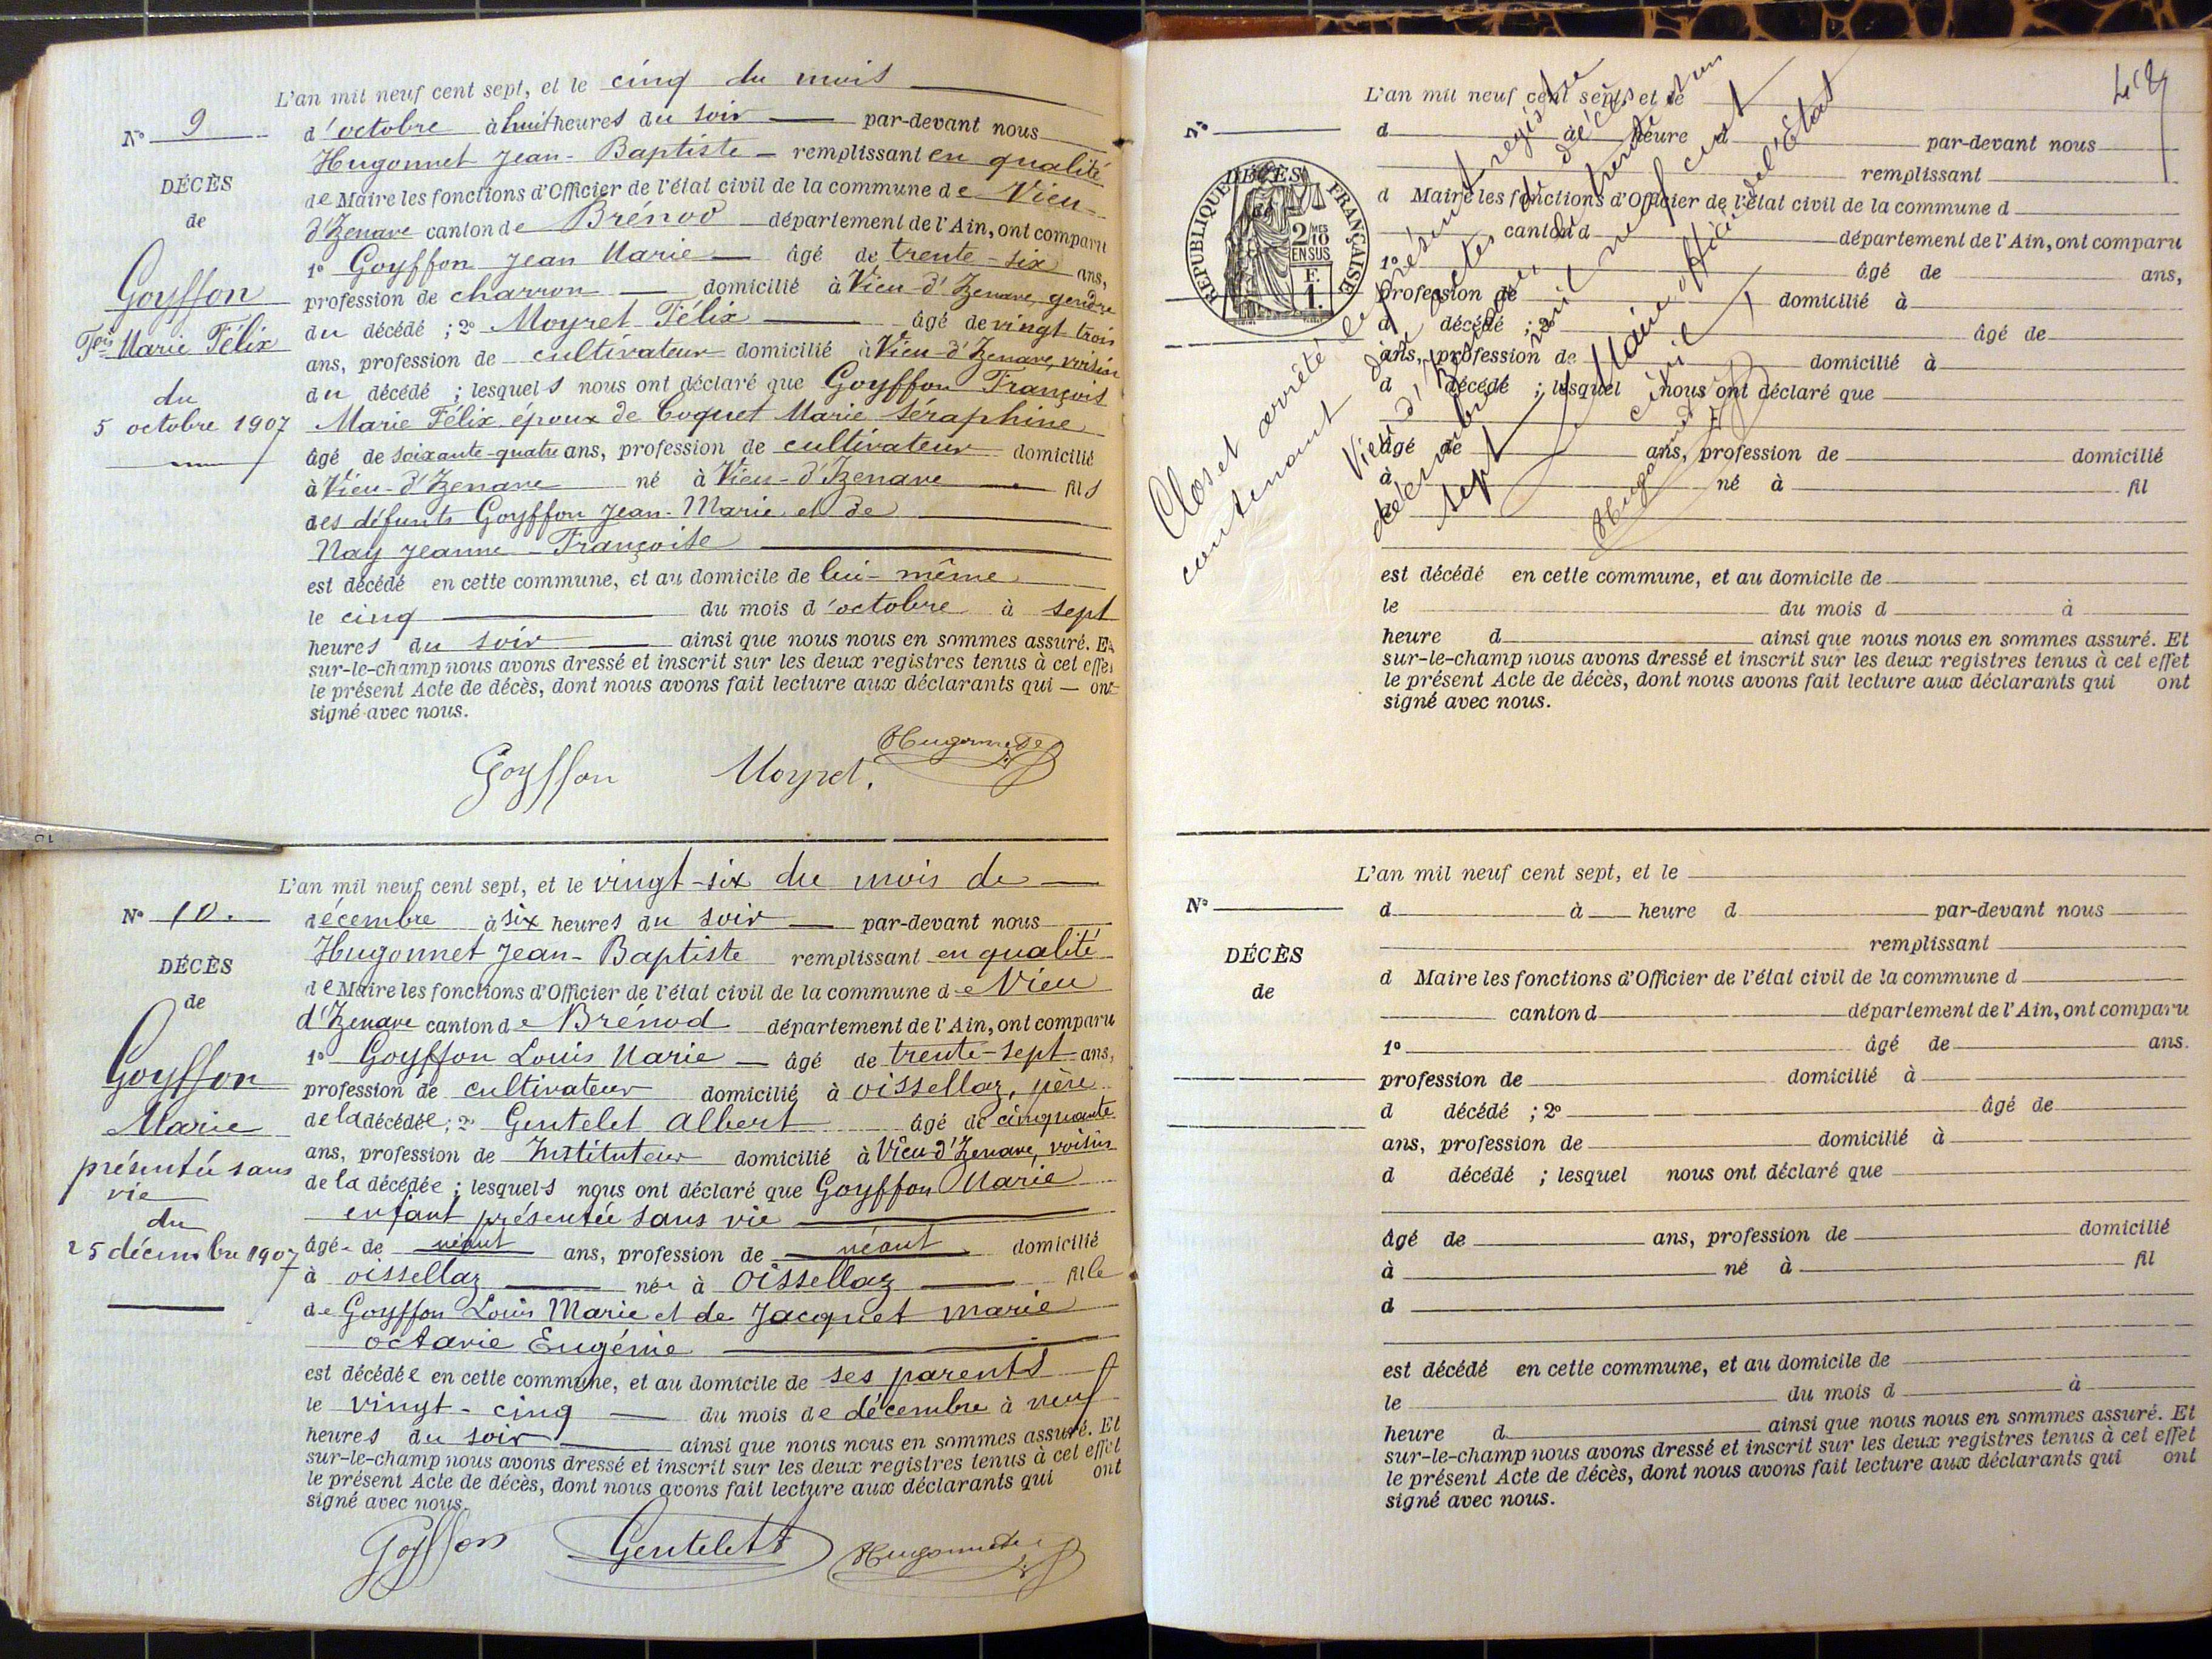 N° 9
DÉCÈS
de
Goyffon
Fois Marie Félix
du
5 octobre 1907
L'an mil neuf cent sept, et le cinq du mois
d'octobre à huit heures du soir par-devant nous
Hugonnet Jean-Baptiste remplissant en qualité
de Maire les fonctions d'Officier de l'état civil de la commune de Vieu
d'Izenave canton de Brénod département de l'Ain, ont comparu
1° Goyffon Jean Marie âgé de trente-six ans,
profession de charron domicilié à Vieu-d'Izenave, gendre
du décédé ; 2° Moyret Félix âgé de vingt trois
ans, profession de cultivateur domicilié à Vieu-d'Izenave, voisin
du décédé ; lesquels nous ont déclaré que Goyffon François
Marie Félix époux de Coquet Marie Séraphine
âgé de soixante-quatre ans, profession de cultivateur domicilié
à Vieu-d'Izenave né à Vieu-d'Izenave fils
des défunts Goyffon Jean-Marie et de
Nay Jeanne-Françoise
est décédé en cette commune, et au domicile de lui-même
le cinq du mois d'octobre à sept
heures du soir ainsi que nous nous en sommes assuré. Et
sur-le-champ nous avons dressé et inscrit sur les deux registres tenus à cet effet
le présent Acte de décès, dont nous avons fait lecture aux déclarants qui — ont
signé avec nous.
Goyffon Moyret. Hugonnet
N° 10.
DÉCÈS
de
Goyffon
Marie
présentée sans
vie
du
25 décembre 1907
L'an mil neuf cent sept, et le vingt-six du mois de
décembre à six heures du soir par-devant nous
Hugonnet Jean-Baptiste remplissant en qualité
de Maire les fonctions d'Officier de l'état civil de la commune de Vieu
d'Izenave canton de Brénod département de l'Ain, ont comparu
1° Goyffon Louis Marie âgé de trente-sept ans,
profession de cultivateur domicilié à Oissellaz, père
de la décédée ; 2° Gentelet Albert âgé de cinquante
ans, profession de Instituteur domicilié à Vieu-d'Izenave, voisin
de la décédée ; lesquels nous ont déclaré que Goyffon Marie
enfant présentée sans vie
âgée de néant ans, profession de néant domicilié
à Oissellaz née à Oissellaz fille
de Goyffon Louis Marie et de Jacquet Marie
Octavie Eugénie
est décédée en cette commune, et au domicile de ses parents
le vingt-cinq du mois de décembre à neuf
heures du soir ainsi que nous nous en sommes assuré. Et
sur-le-champ nous avons dressé et inscrit sur les deux registres tenus à cet effet
le présent Acte de décès, dont nous avons fait lecture aux déclarants qui ont
signé avec nous.
Goyffon Gentelet Hugonnet
N°
DÉCÈS
de
RÉPUBLIQUE FRANÇAISE
2/10 MES
EN SUS
F.
1.
L'an mil neuf cent sept, et le
d à heure d par-devant nous
remplissant
d Maire les fonctions d'Officier de l'état civil de la commune d
canton d département de l'Ain, ont comparu
1° âgé de ans,
profession de domicilié à
d décédé ; 2° âgé de
ans, profession de domicilié à
d décédé ; lesquel nous ont déclaré que
âgé de ans, profession de domicilié
à né à fil
d
est décédé en cette commune, et au domicile de
le du mois d à
heure d ainsi que nous nous en sommes assuré. Et
sur-le-champ nous avons dressé et inscrit sur les deux registres tenus à cet effet
le présent Acte de décès, dont nous avons fait lecture aux déclarants qui ont
signé avec nous.
Clos et arrêté le présent registre
contenant dix actes de décès
Vieu d'Izenave, le trente et un
décembre mil neuf cent
sept
Le Maire officier de l'Etat
civil
Hugonnet
N°
DÉCÈS
de
L'an mil neuf cent sept, et le
d à heure d par-devant nous
remplissant
d Maire les fonctions d'Officier de l'état civil de la commune d
canton d département de l'Ain, ont comparu
1° âgé de ans.
profession de domicilié à
d décédé ; 2° âgé de
ans, profession de domicilié à
d décédé ; lesquel nous ont déclaré que
âgé de ans, profession de domicilié
à né à fil
d
est décédé en cette commune, et au domicile de
le du mois d à
heure d ainsi que nous nous en sommes assuré. Et
sur-le-champ nous avons dressé et inscrit sur les deux registres tenus à cet effet
le présent Acte de décès, dont nous avons fait lecture aux déclarants qui ont
signé avec nous.